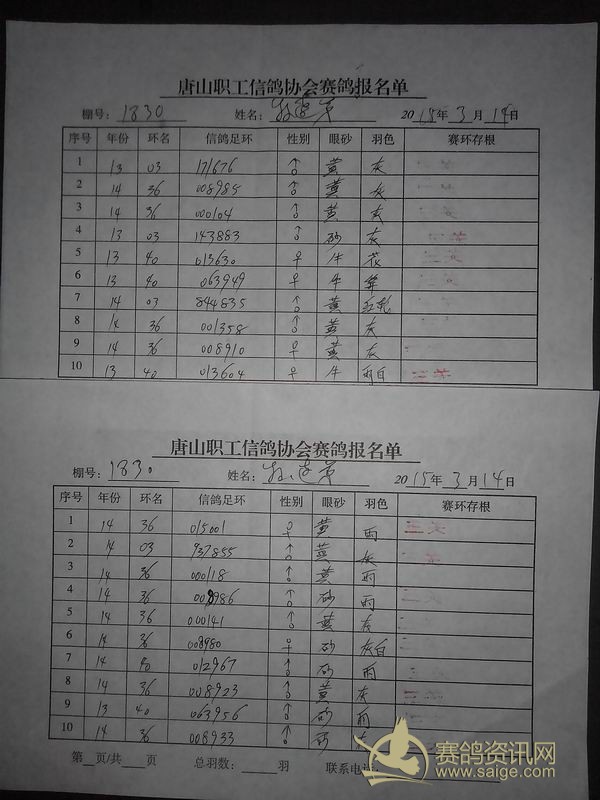 唐山职工信鸽协会赛鸽报名单
棚号: 1830 姓名: 2015年3月14日
序号 年份 环名 信鸽足环 性别 眼砂 羽色 赛环存根
1 13 03 171676 ♂ 黄 灰
2 14 36 008985 ♂ 黄 灰
3 14 36 000104 ♂ 黄 灰
4 13 03 143883 ♂ 砂 灰
5 13 40 013630 ♀ 牛 花
6 13 40 063949 ♀ 牛
7 14 03 844835 ♂ 黄 红轮
8 14 36 001358 ♂ 黄 灰
9 14 36 008910 ♀ 黄 灰
10 13 40 013604 ♀ 牛 雨白
唐山职工信鸽协会赛鸽报名单
棚号: 1830 姓名: 2015年3月14日
序号 年份 环名 信鸽足环 性别 眼砂 羽色 赛环存根
1 14 36 015001 ♀ 黄 雨
2 14 03 937855 ♂ 黄 灰
3 14 36 000118 ♂ 黄 雨
4 14 36 008986 ♂ 砂 雨
5 14 36 000141 ♂ 黄 灰
6 14 36 008980 ♀ 砂 灰白
7 14 40 012967 ♂ 砂 雨
8 14 36 008923 ♂ 黄 灰
9 13 40 063956 ♂ 砂 雨
10 14 36 008933 ♂ 砂
第 页/共 页 总羽数: 羽 联系电话:
赛鸽资讯网
www.saige.com